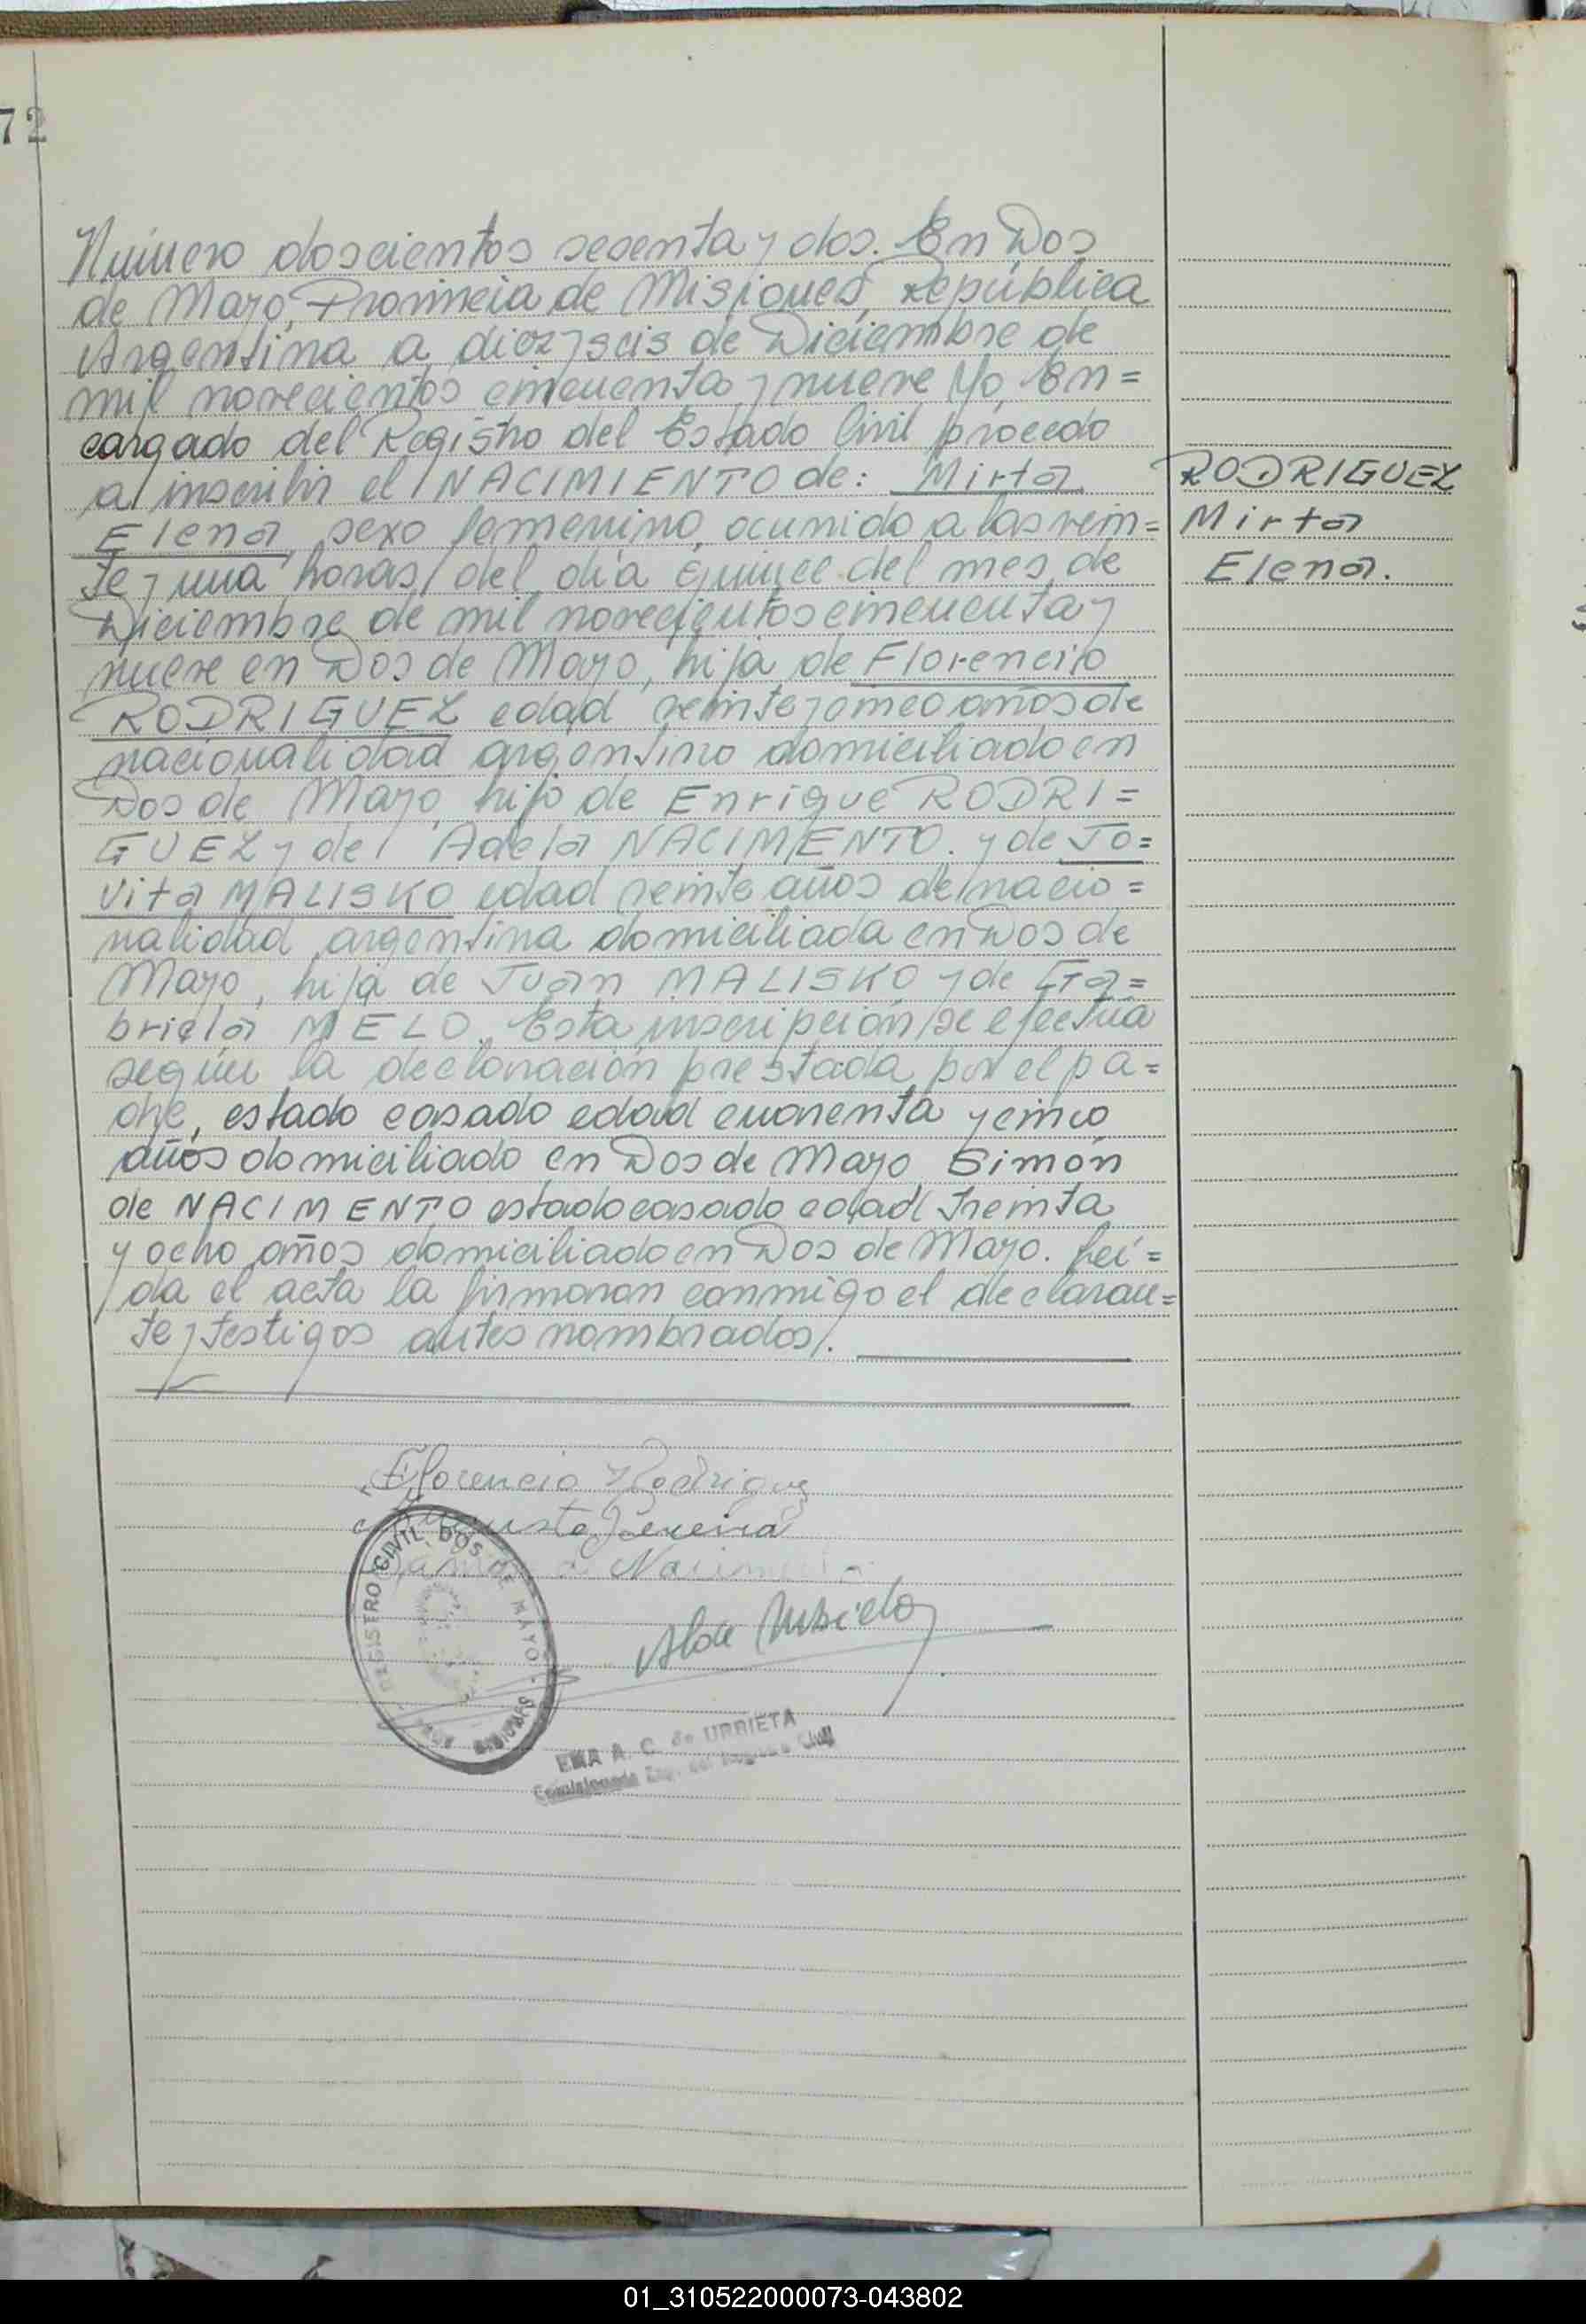 72
Número doscientos sesenta y dos. En Dos
de Mayo, Provincia de Misiones, República
Argentina a diez y seis de Diciembre de
mil novecientos cincuenta y nueve Yo, En=
cargado del Registro del Estado Civil procedo
a inscribir el NACIMIENTO de: Mirta
RODRIGUEZ
Elena, sexo femenino, ocurrido a las vein=
Mirta
te y una horas del día quince del mes de
Elena.
Diciembre de mil novecientos cincuenta y
nueve en Dos de Mayo, hija de Florencio
RODRIGUEZ edad veinte y cinco años de
nacionalidad argentino domiciliado en
Dos de Mayo, hijo de Enrique RODRI=
GUEZ y de Adela NACIMENTO. y de Jo=
vita MALISKO edad veinte años de nacio=
nalidad argentina domiciliada en Dos de
Mayo, hija de Juan MALISKO y de Ga=
briela MELO. Esta inscripción se efectúa
según la declaración prestada por el pa=
dre, estado casado edad cuarenta y cinco
años domiciliado en Dos de Mayo, Simón
de NACIMENTO estado casado edad treinta
y ocho años domiciliado en Dos de Mayo. Leí=
da el acta la firmaron conmigo el declaran=
te y testigos antes nombrados.
Florencio Rodriguez
Pereira
REGISTRO CIVIL DOS DE MAYO
EMA A. C. de URRIETA
01_310522000073-043802